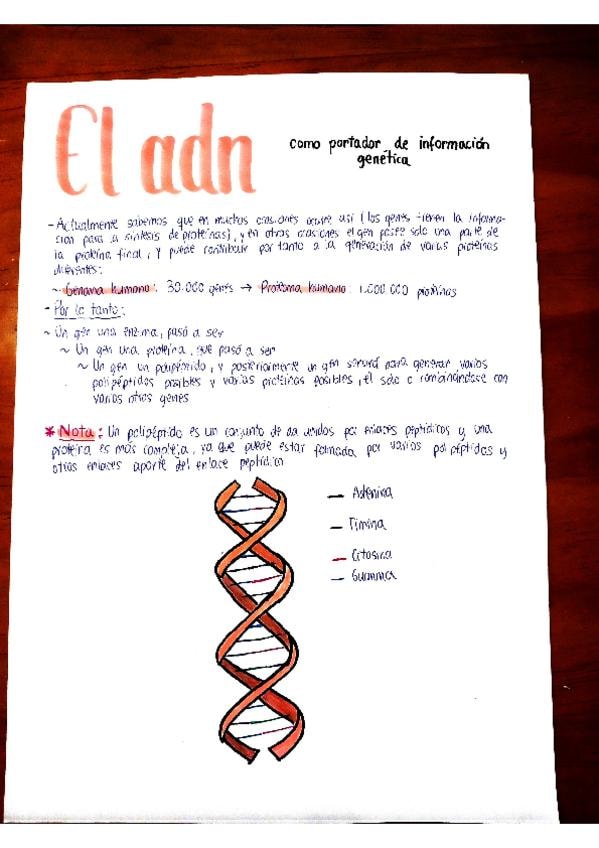 El adn
como portador de información
genética
- Actualmente sabemos que en muchas ocasiones ocurre así (los genes tienen la informa-
cion para la síntesis de proteínas), y en otras ocasiones el gen posee solo una parte de
la proteína final, y puede contribuir por tanto a la generación de varias proteínas
diferentes:
~ Genoma humano: 30.000 genes → Proteoma humano: 1.000.000 proteínas
- Por lo tanto:
~ Un gen una enzima, pasó a ser
~ Un gen una proteína, que pasó a ser
~ Un gen un polipéptido, y posteriormente un gen servirá para generar varios
polipéptidos posibles y varias proteínas posibles, él solo o combinándose con
varios otros genes
* Nota: Un polipéptido es un conjunto de aa unidos por enlaces peptídicos y una
proteína es más compleja, ya que puede estar formada por varios polipéptidos y
otros enlaces aparte del enlace peptídico
Adenina
Timina
Citosina
Guanina